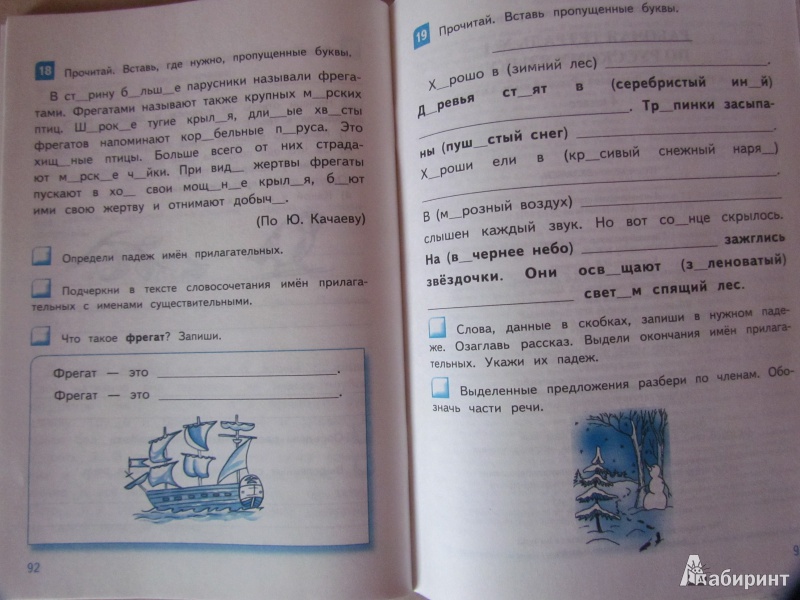 18 Прочитай. Вставь, где нужно, пропущенные буквы.
В ст__рину б__льш__е парусники называли фрега-
тами. Фрегатами называют также крупных м__рских
птиц. Ш__рок__е тугие крыл__я, дли__ые хв__сты
фрегатов напоминают кор__бельные п__руса. Это
хищ__ные птицы. Больше всего от них страда-
ют м__рск__е ч__йки. При вид__ жертвы фрегаты
пускают в хо__ свои мощ__н__е крыл__я, б__ют
ими свою жертву и отнимают добыч__.
(По Ю. Качаеву)
Определи падеж имён прилагательных.
Подчеркни в тексте словосочетания имён прилага-
тельных с именами существительными.
Что такое фрегат? Запиши.
Фрегат — это ____________________.
Фрегат — это ____________________.
92
19 Прочитай. Вставь пропущенные буквы.
____________________
Х__рошо в (зимний лес) ____________________.
Д__ревья ст__ят в (серебристый ин__й)
____________________. Тр__пинки засыпа-
ны (пуш__стый снег) ____________________.
Х__роши ели в (кр__сивый снежный наря__)
____________________.
В (м__розный воздух) ____________________
слышен каждый звук. Но вот со__нце скрылось.
На (в__чернее небо) ____________________ зажглись
звёздочки. Они осв__щают (з__леноватый)
____________________ свет__м спящий лес.
Слова, данные в скобках, запиши в нужном паде-
же. Озаглавь рассказ. Выдели окончания имён прилага-
тельных. Укажи их падеж.
Выделенные предложения разбери по членам. Обо-
значь части речи.
9
Лабиринт